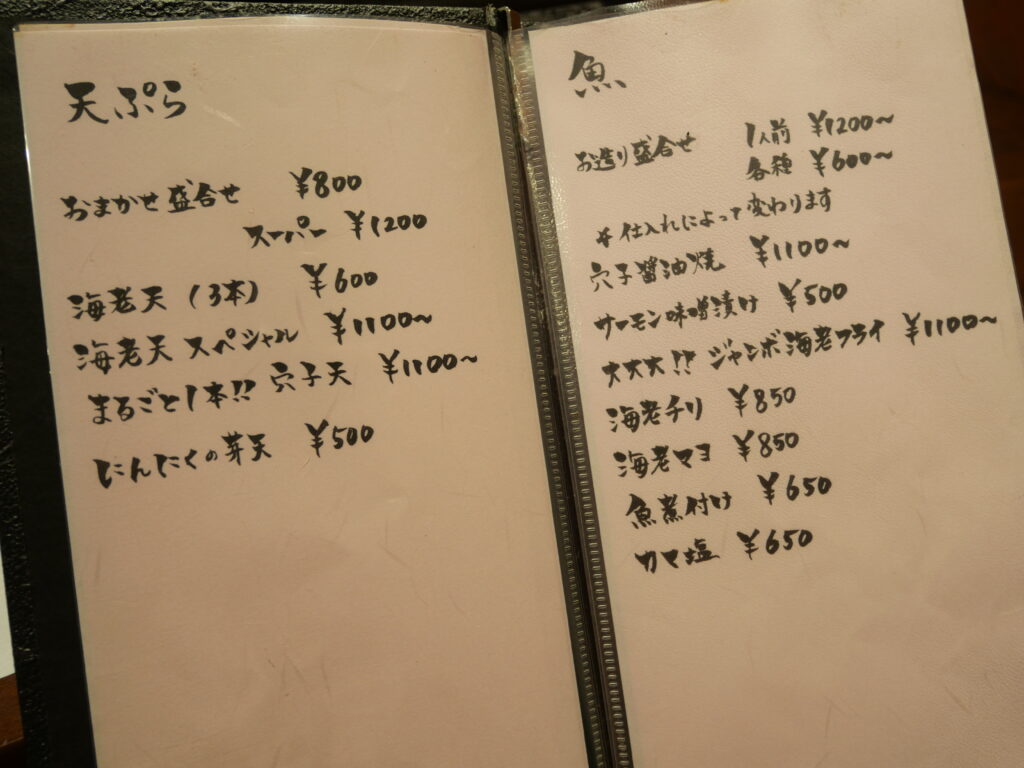 天ぷら
おまかせ盛合せ ¥800
スーパー ¥1200
海老天 (3本) ¥600
海老天 スペシャル ¥1100〜
まるごと1本!! 穴子天 ¥1100〜
にんにくの芽天 ¥500
魚
お造り盛合せ 1人前 ¥1200〜
各種 ¥600〜
* 仕入れによって変わります
穴子醤油焼 ¥1100〜
サーモン味噌漬け ¥500
大大大!! ジャンボ海老フライ ¥1100〜
海老チリ ¥850
海老マヨ ¥850
魚煮付け ¥650
カマ塩 ¥650